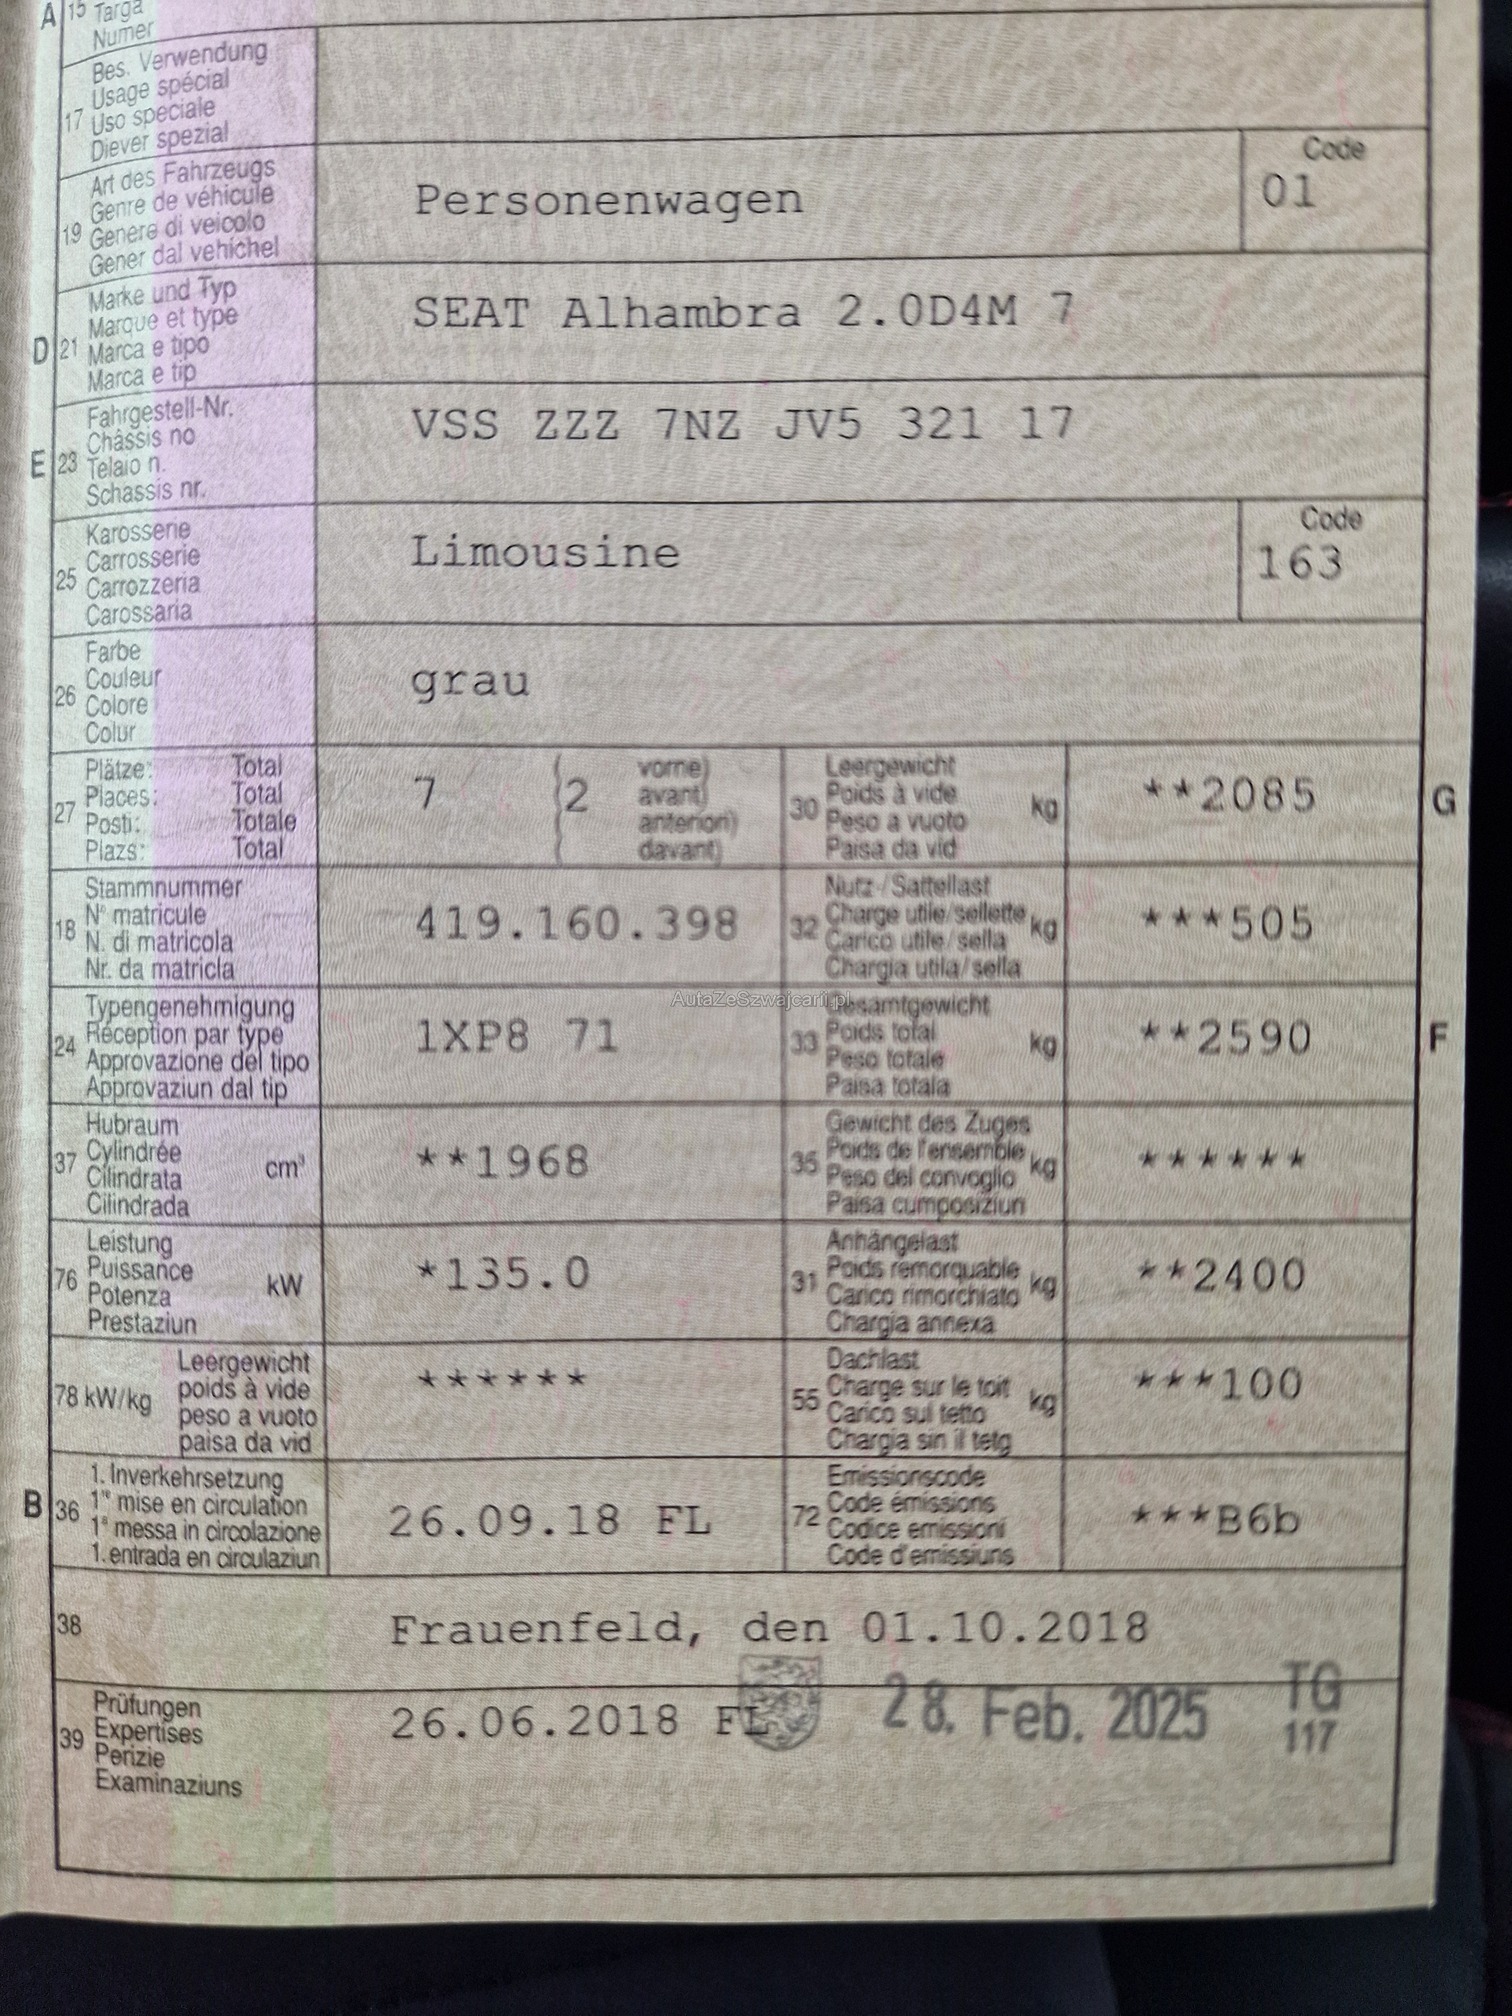 A 15 Targa
Numer
17 Bes. Verwendung
Usage spécial
Uso speciale
Diever spezial
19 Art des Fahrzeugs
Genre de véhicule
Genere di veicolo
Gener dal vehichel
Personenwagen
Code
01
D 21 Marke und Typ
Marque et type
Marca e tipo
Marca e tip
SEAT Alhambra 2.0D4M 7
E 23 Fahrgestell-Nr.
Châssis no
Telaio n.
Schassis nr.
VSS ZZZ 7NZ JV5 321 17
25 Karosserie
Carrosserie
Carrozzeria
Carossaria
Limousine
Code
163
26 Farbe
Couleur
Colore
Colur
grau
27 Plätze: Total
Places: Total
Posti: Totale
Plazs: Total
7 (2 vorne)
avant)
anteriori)
davant)
30 Leergewicht
Poids à vide
Peso a vuoto
Paisa da vid
kg
**2085
G
18 Stammnummer
N° matricule
N. di matricola
Nr. da matricla
419.160.398
32 Nutz-/Sattellast
Charge utile/sellette
Carico utile/sella
Chargia utila/sella
kg
***505
AutaZeSzwajcarii.pl
24 Typengenehmigung
Réception par type
Approvazione del tipo
Approvaziun dal tip
1XP8 71
33 Gesamtgewicht
Poids total
Peso totale
Paisa totala
kg
**2590
F
37 Hubraum
Cylindrée
Cilindrata
Cilindrada
cm³
**1968
35 Gewicht des Zuges
Poids de l'ensemble
Peso del convoglio
Paisa cumposiziun
kg
******
76 Leistung
Puissance
Potenza
Prestaziun
kW
*135.0
31 Anhängelast
Poids remorquable
Carico rimorchiato
Chargia annexa
kg
**2400
78 kW/kg
Leergewicht
poids à vide
peso a vuoto
paisa da vid
******
55 Dachlast
Charge sur le toit
Carico sul tetto
Chargia sin il tetg
kg
***100
B 36 1. Inverkehrsetzung
1re mise en circulation
1a messa in circolazione
1. entrada en circulaziun
26.09.18 FL
72 Emissionscode
Code émissions
Codice emissioni
Code d'emissiuns
***B6b
38
Frauenfeld, den 01.10.2018
39 Prüfungen
Expertises
Perizie
Examinaziuns
26.06.2018 FL
28. Feb. 2025
TG
117